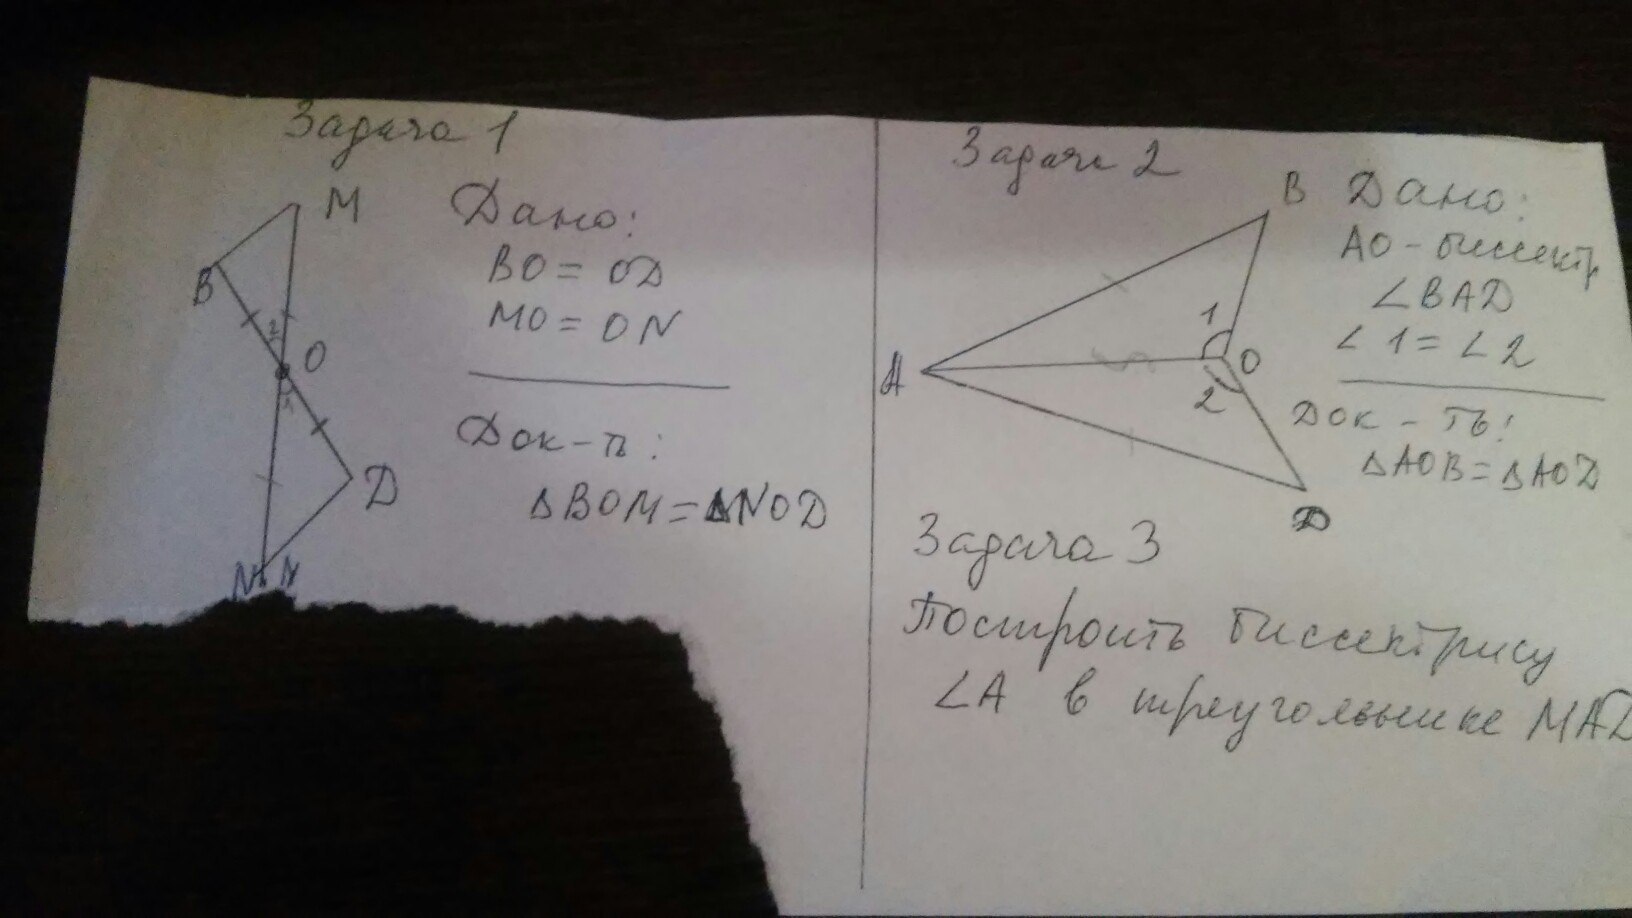 Задача 1
M
B
2
O
1
D
N N
Дано:
BO = OD
MO = ON
Док-ть:
ΔBOM = ΔNOD
Задача 2
B
A
1
O
2
D
Дано:
AO - биссектр
∠BAD
∠1 = ∠2
Док-ть:
ΔAOB = ΔAOD
Задача 3
Построить биссектрису
∠A в треугольнике MAD